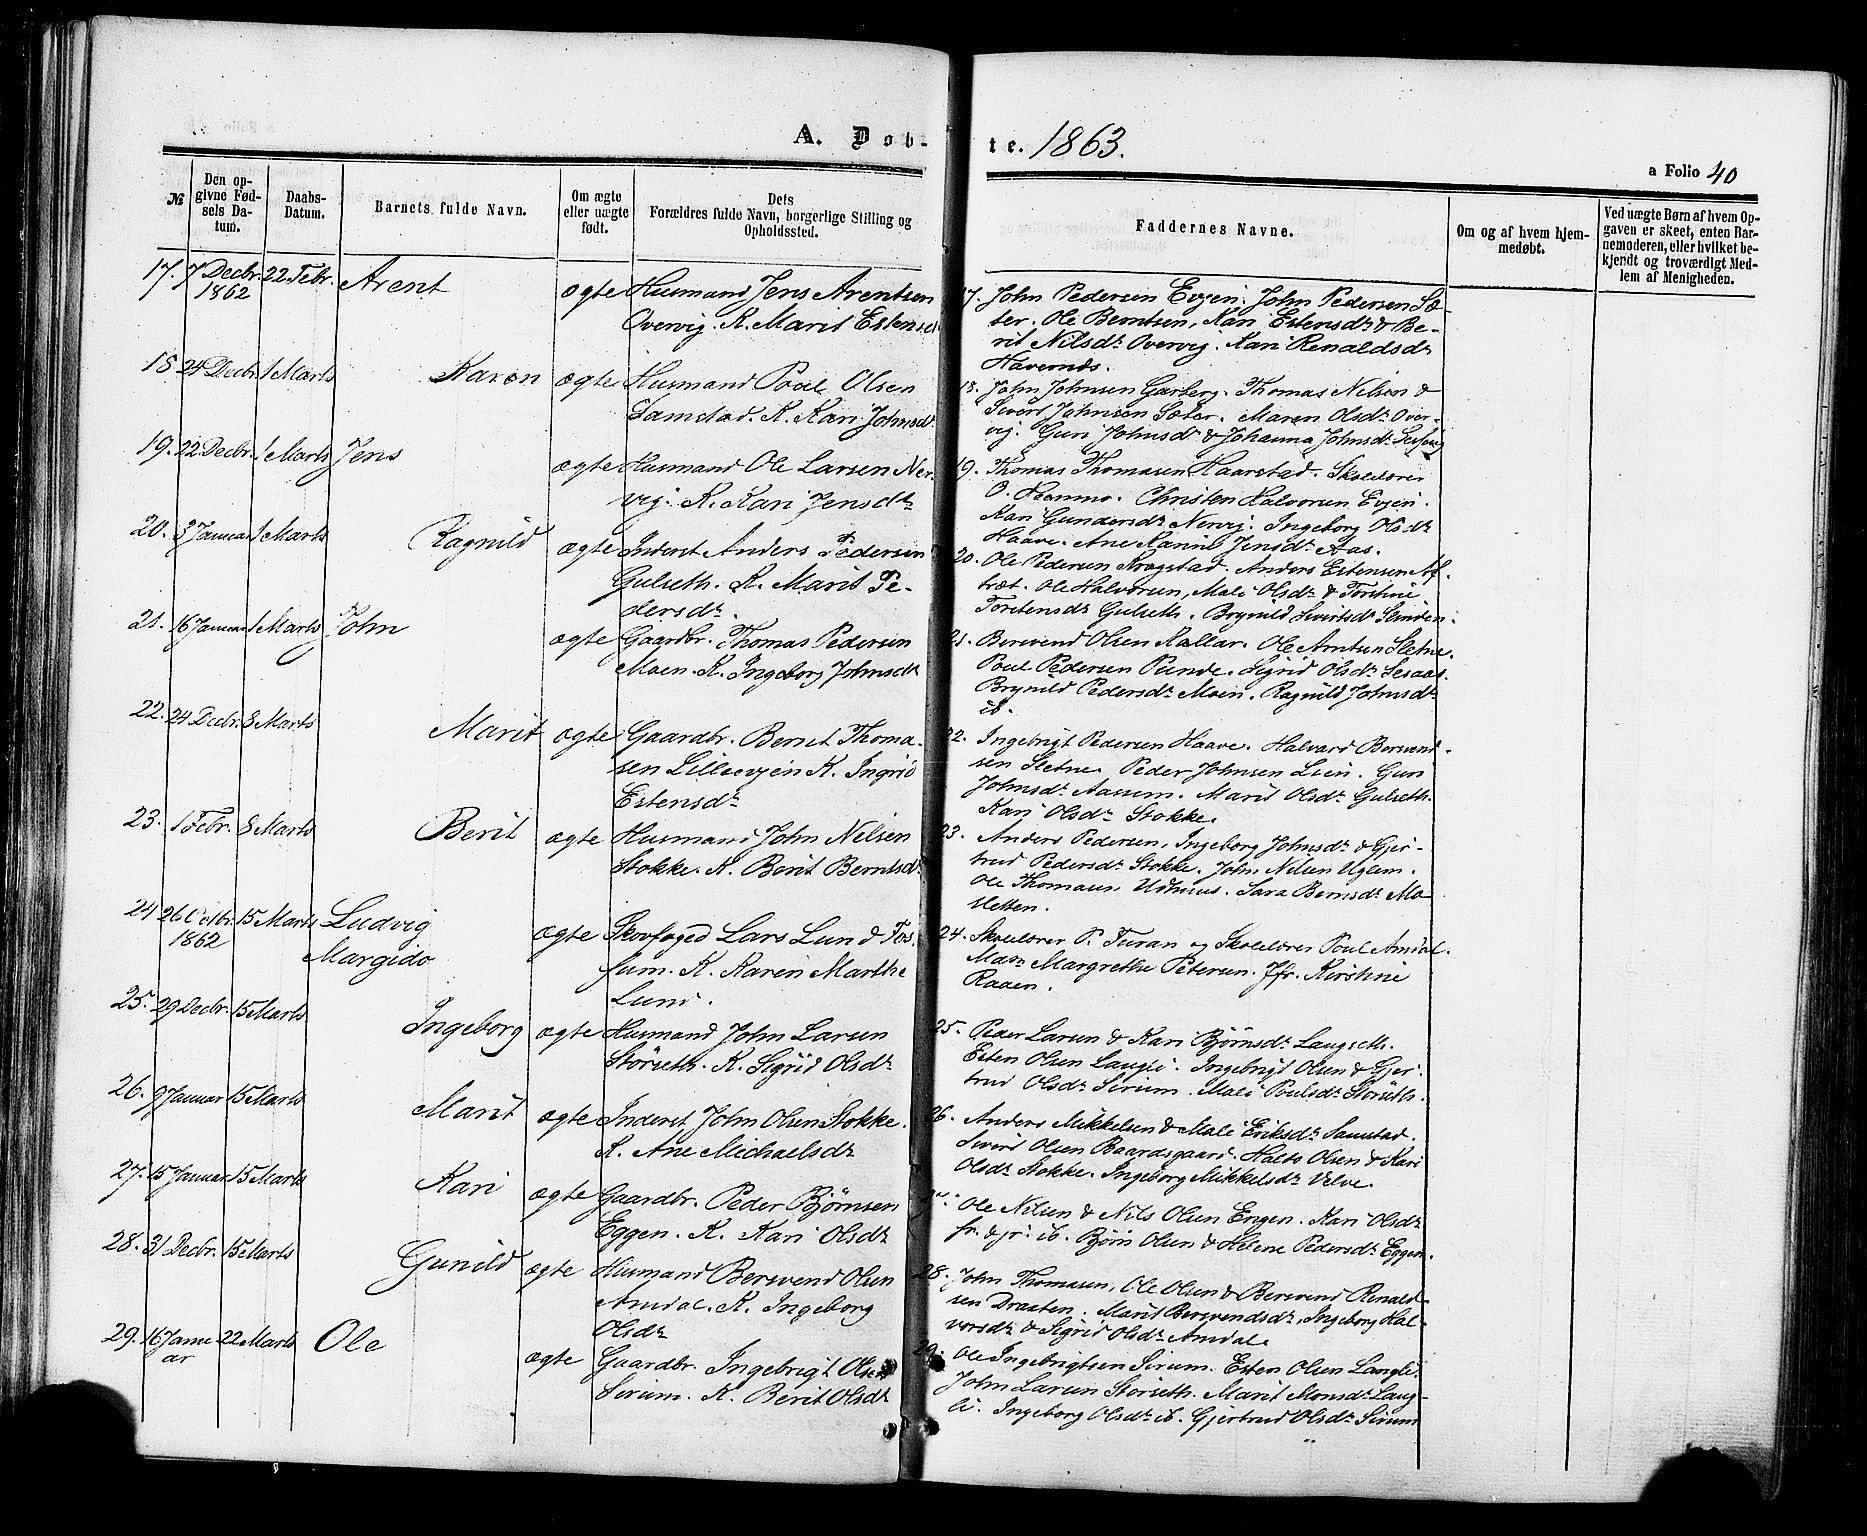 A. Døb-
te. 1863.
a Folio 40
№
Den op-
givne Fød-
sels Da-
tum.
Daabs-
Datum.
Barnets fulde Navn.
Om ægte
eller uægte
født.
Dets
Forældres fulde Navn, borgerlige Stilling og
Opholdssted.
Faddernes Navne.
Om og af hvem hjem-
medøbt.
Ved uægte Børn af hvem Op-
gaven er skeet, enten Bar-
nemoderen, eller hvilket be-
kjendt og troværdigt Med-
lem af Menigheden.
17. 7 Decbr. 22 Febr. Arent ægte Husmand Jens Arentsen
1862
Overvig. K. Marit Estensd
17. John Pedersen Evjen. John Pedersen Sæ-
ter. Ole Berntsen, Kari Estensdr & Be-
rit Nilsdr Overvig. Kari Renaldsdr
18. 24 Decbr. 1 Marts Karen ægte Husmand Poul Olsen
Samstad. K. Kari Johnsd.
18. John Johnsen Garberg. Thomas Nilsen &
Sivert Johnsen Sæter. Maren Olsdr Over-
vig. Guri Johnsdr & Johanna Johnsdr
19. 22 Decbr. 1 Marts Jens ægte Husmand Ole Larsen Ner-
vig. K. Kari Jensdr
19. Thomas Thomasen Haarstad. Skolelærer
O. Christen Halvorsen Evjen.
Kari Gundersdr Nervig. Ingeborg Olsdr
Haave. Ane Karine Jensdr Aas.
20. 3 Januar 1 Marts Ragnild ægte Inderst Anders Pedersen
Gulseth. K. Marit Pe-
dersdr.
20. Ole Pedersen Krogstad. Anders Estensen Af-
træt. Ole Halvorsen, Mali Olsdr &
Torstensdr Gulseth. Brynild Sivertsdr
21. 16 Januar 1 Marts John ægte Gaardbr. Thomas Pedersen
Moen. K. Ingeborg Johnsdr
21. Bersvend Olsen Kallar. Ole Arntsen Sletne.
Poul Pedersen Punde. Sigrid Olsdr Sesaas.
Brynild Pedersdr Moen. Ragnild Johnsdr
ib.
22. 24 Decbr. 8 Marts Marit ægte Gaardbr. Bernt Thoma-
sen Lilleevjen K. Ingrid
Estensdr
22. Ingebrigt Pedersen Haave. Halvard Bersvend-
sen Sletne. Peder Johnsen Lien. Guri
Johnsdr Aasum. Marit Olsdr Gulseth.
Kari Olsdr Stokke.
23. 1 Febr. 8 Marts Berit ægte Husmand John Nilsen
Stokke. K. Berit Berntsd.
23. Anders Pedersen, Ingeborg Johnsdr & Gjer-
trud Pedersdr Stokke. John Nilsen Uglem.
Ole Thomasen Udhuus. Sara Berntsdr Mo-
sletten.
24 26 Octbr. 15 Marts Ludvig ægte Skovfoged Lars Lund Fos-
1862
Margido
sum. K. Karen Marthe
Lund.
24. Skolelærer P. Turan og Skolelærer Poul Amdal.
Madm Margrethe Petersen. Jfr. Kirstine
Raaen.
25. 29 Decbr. 15 Marts Ingeborg ægte Husmand John Larsen
Störseth. K. Sigrid Olsdr
25. Peder Larsen & Kari Bjørnsdr Langseth.
Esten Olsen Langli. Ingebrigt Olsen & Gjer-
trud Olsdr Sirum. Mali Poulsdr Störseth.
26. 9 Januar 15 Marts Marit ægte Inderst John Olsen Stokke.
K. Ane Michaelsdr
26. Anders Mikkelsen & Mali Eriksdr Samstad.
Sivert Olsen Baardsgaard. Olsen & Kari
Olsdr Stokke. Ingeborg Mikkelsdr Velve.
27. 15 Januar 15 Marts Kari ægte Gaardbr. Peder Bjørnsen
Eggen. K. Kari Olsdr
Ole Nilsen & Nils Olsen Engen. Kari Olsdr
fr. & jr. ib. Bjørn Olsen & Helene Pedersdr Eggen.
28. 31 Decbr. 15 Marts Gunild ægte Husmand Bersvend Olsen
Amdal. K. Ingeborg
Olsdr
28. John Thomasen, Ole Olsen & Bersvend Renald-
sen Draxten. Marit Bersvendsdr, Ingeborg Hal-
vorsdr & Sigrid Olsdr Amdal.
29. 16 Janu- 22 Marts Ole ægte Gaardbr. Ingebrigt Olsen
ar
Sirum. K. Berit Olsdr
29. Ole Ingebrigtsen Sirum. Esten Olsen Langli.
John Larsen Störseth. Marit Monsdr Lang-
li. Ingeborg Olsdr ib. Gjertrud Olsdr Sirum